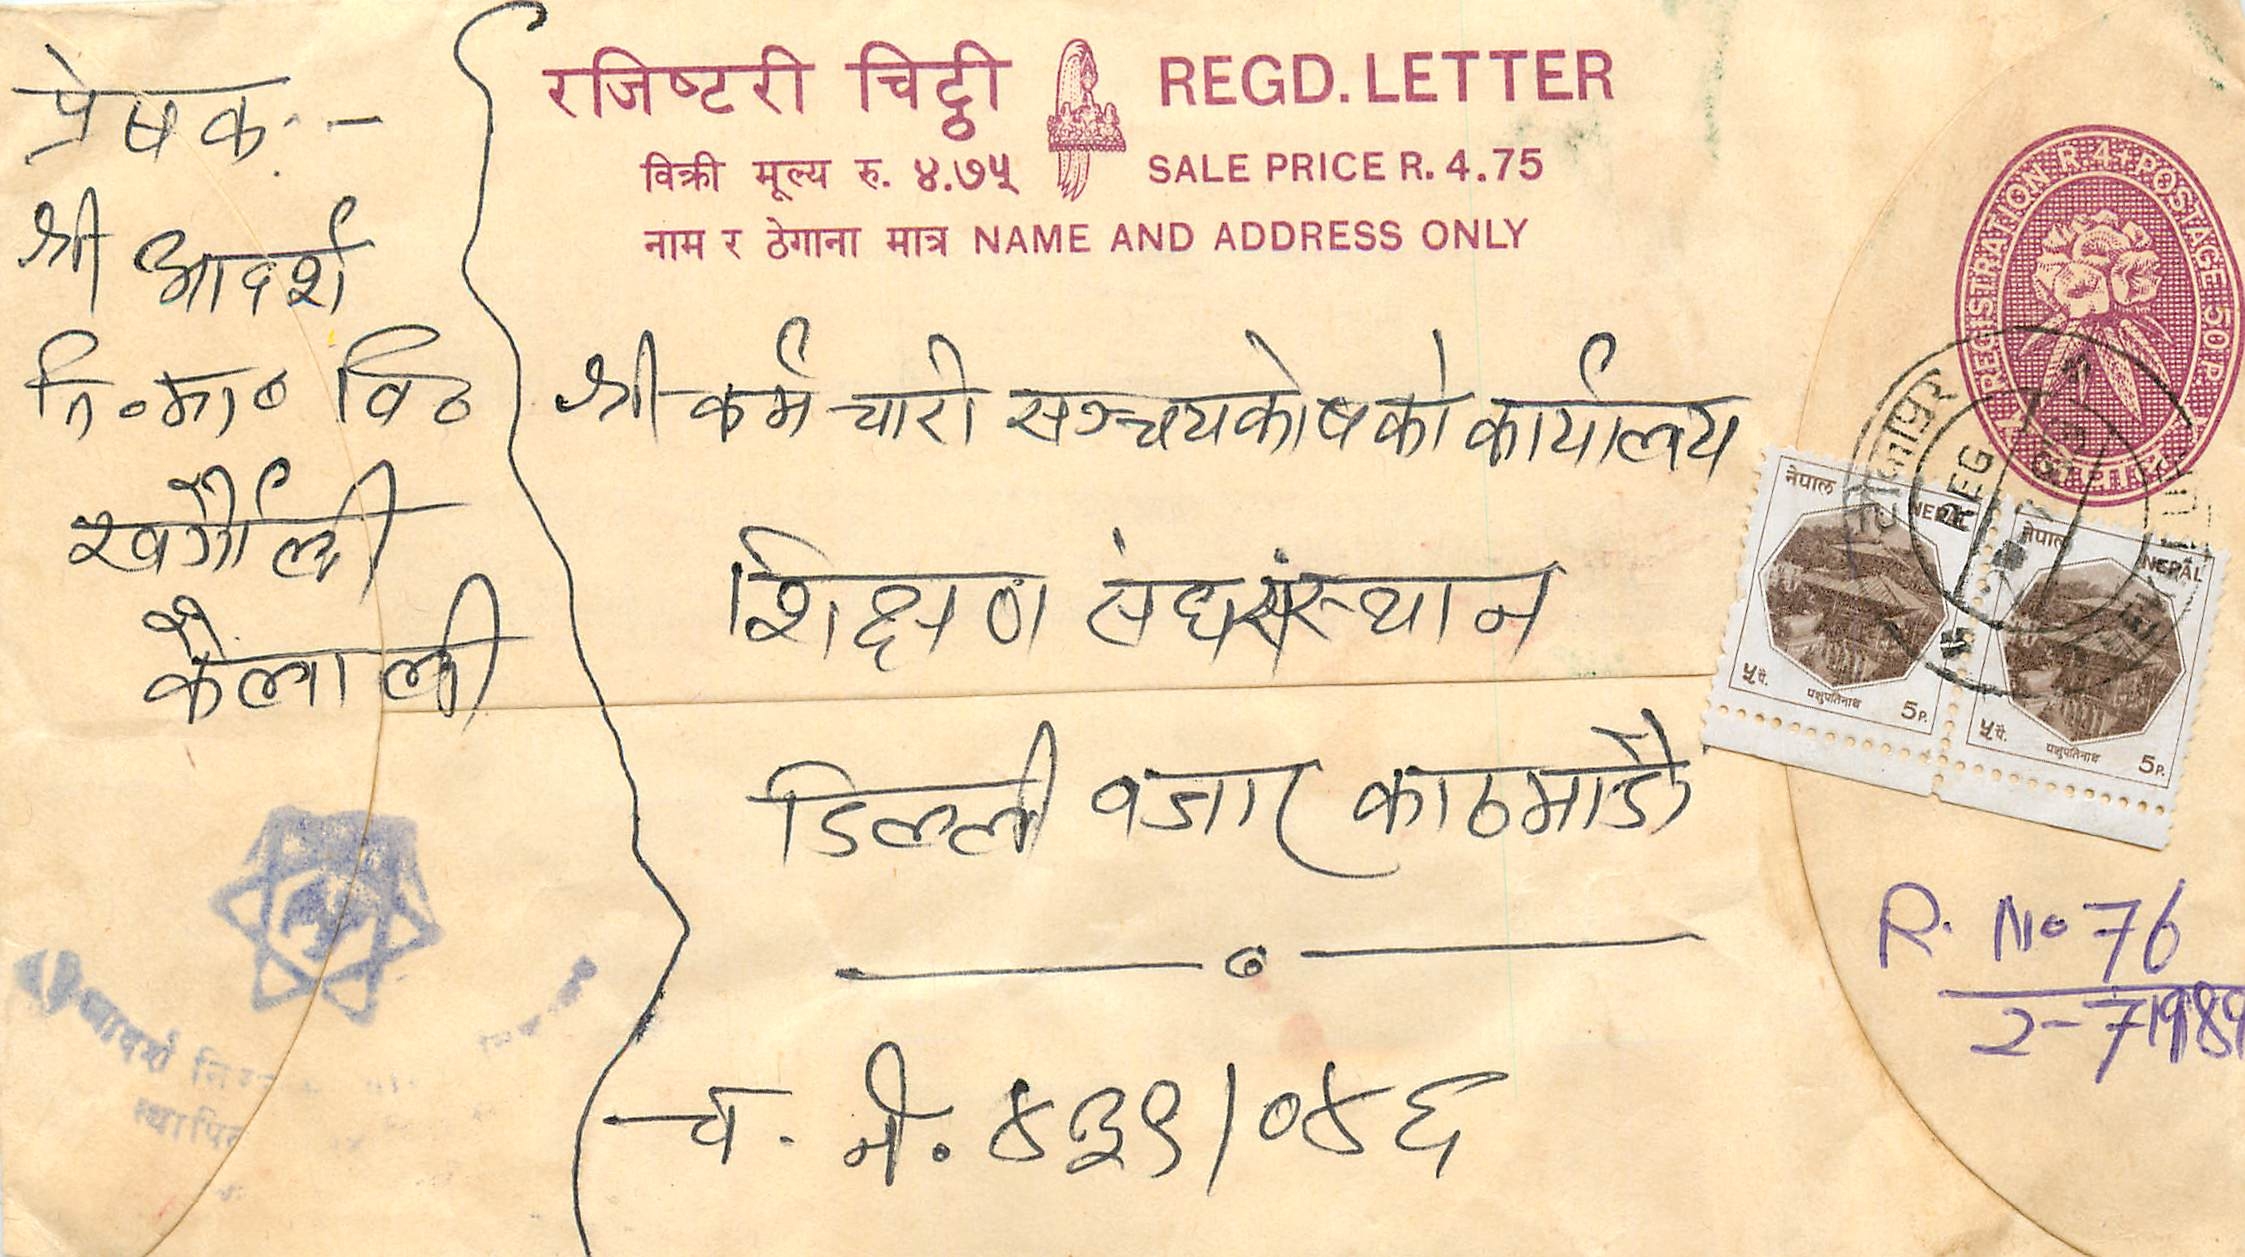 रजिष्टरी चिट्ठी REGD. LETTER
विक्री मूल्य रु. ४.७५ SALE PRICE R. 4.75
नाम र ठेगाना मात्र NAME AND ADDRESS ONLY
REGISTRATION R. 4+POSTAGE 50 P.
प्रेषक:-
श्री आदर्श
नि०मा० वि०
कैलाली
श्री कर्मचारी सञ्चयकोषको कार्यालय
शिक्षण संघसंस्थान
डिल्ली बजार काठमाडौ
च. नं. ४३९/०४६
नेपाल NEPAL
५ पै. पशुपतिनाथ 5 P.
नेपाल NEPAL
५ पै. पशुपतिनाथ 5 P.
REG
R. No 76
2-7-1989
आदर्श